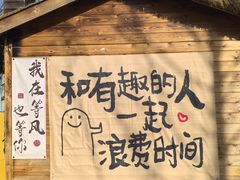 我在等风
也等你
和有趣的人
一起
浪费时间